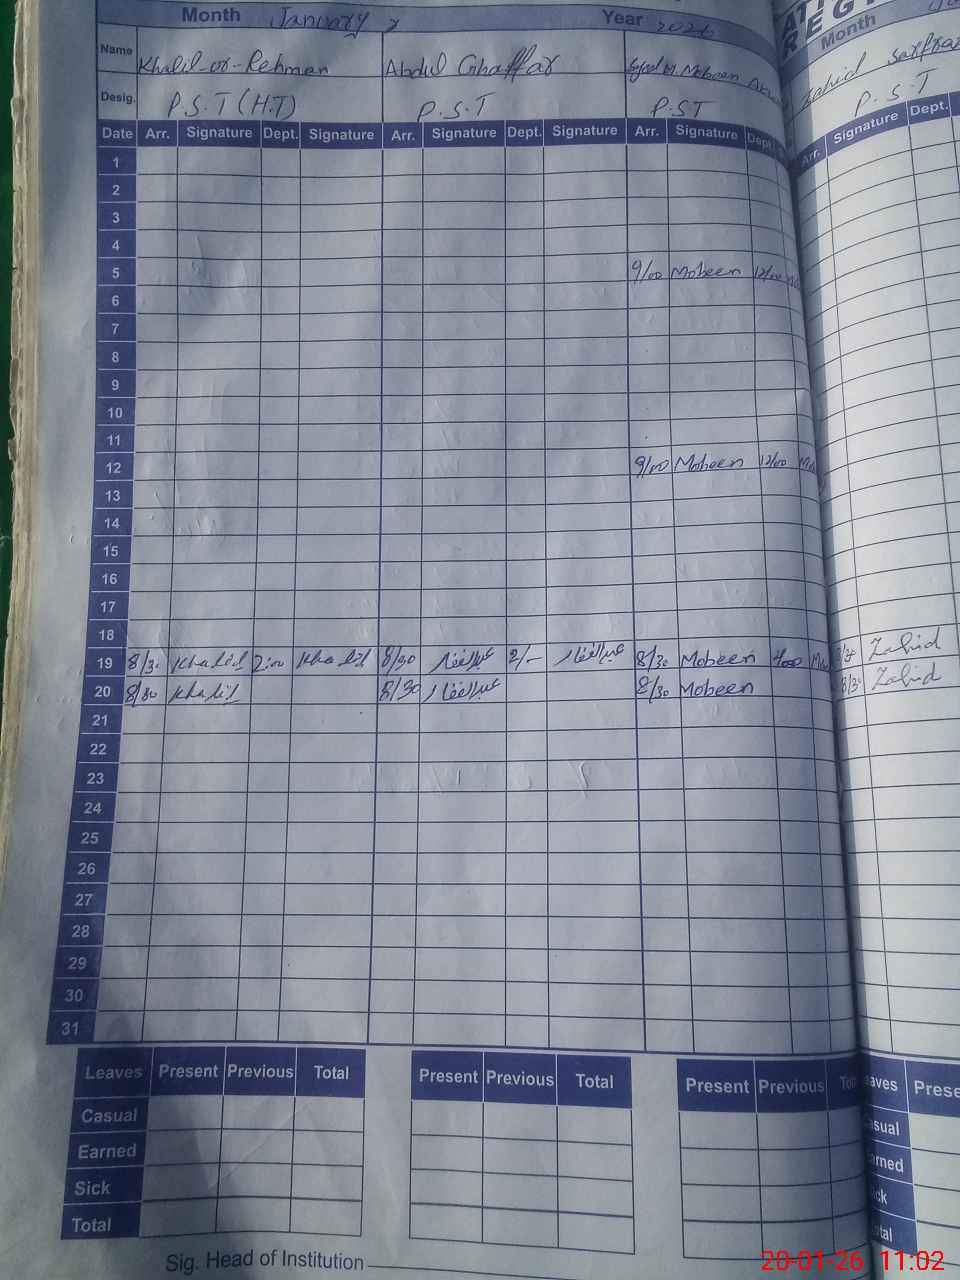 Month January Year 2026
Name Khalil-ur-Rehman Abdul Ghaffar Syed M. Mobeen
Desig. P.S.T (H.T) P.S.T P.ST
Date Arr. Signature Dept. Signature Arr. Signature Dept. Signature Arr. Signature Dept.
1
2
3
4
5 9/00 Mobeen 12/00
6
7
8
9
10
11
12 9/00 Mobeen 12/00
13
14
15
16
17
18
19 8/30 Khalil 2:00 Khalil 8/30 عبدالغفار 2/- عبدالغفار 8/30 Mobeen 2/00
20 8/30 Khalil 8/30 عبدالغفار 8/30 Mobeen
21
22
23
24
25
26
27
28
29
30
31
Leaves Present Previous Total Present Previous Total Present Previous
Casual
Earned
Sick
Total
Sig. Head of Institution
REG
Month
Zahid Sarfraz
P.S.T
Arr. Signature Dept.
8/30 Zahid
8/30 Zahid
20-01-26 11:02